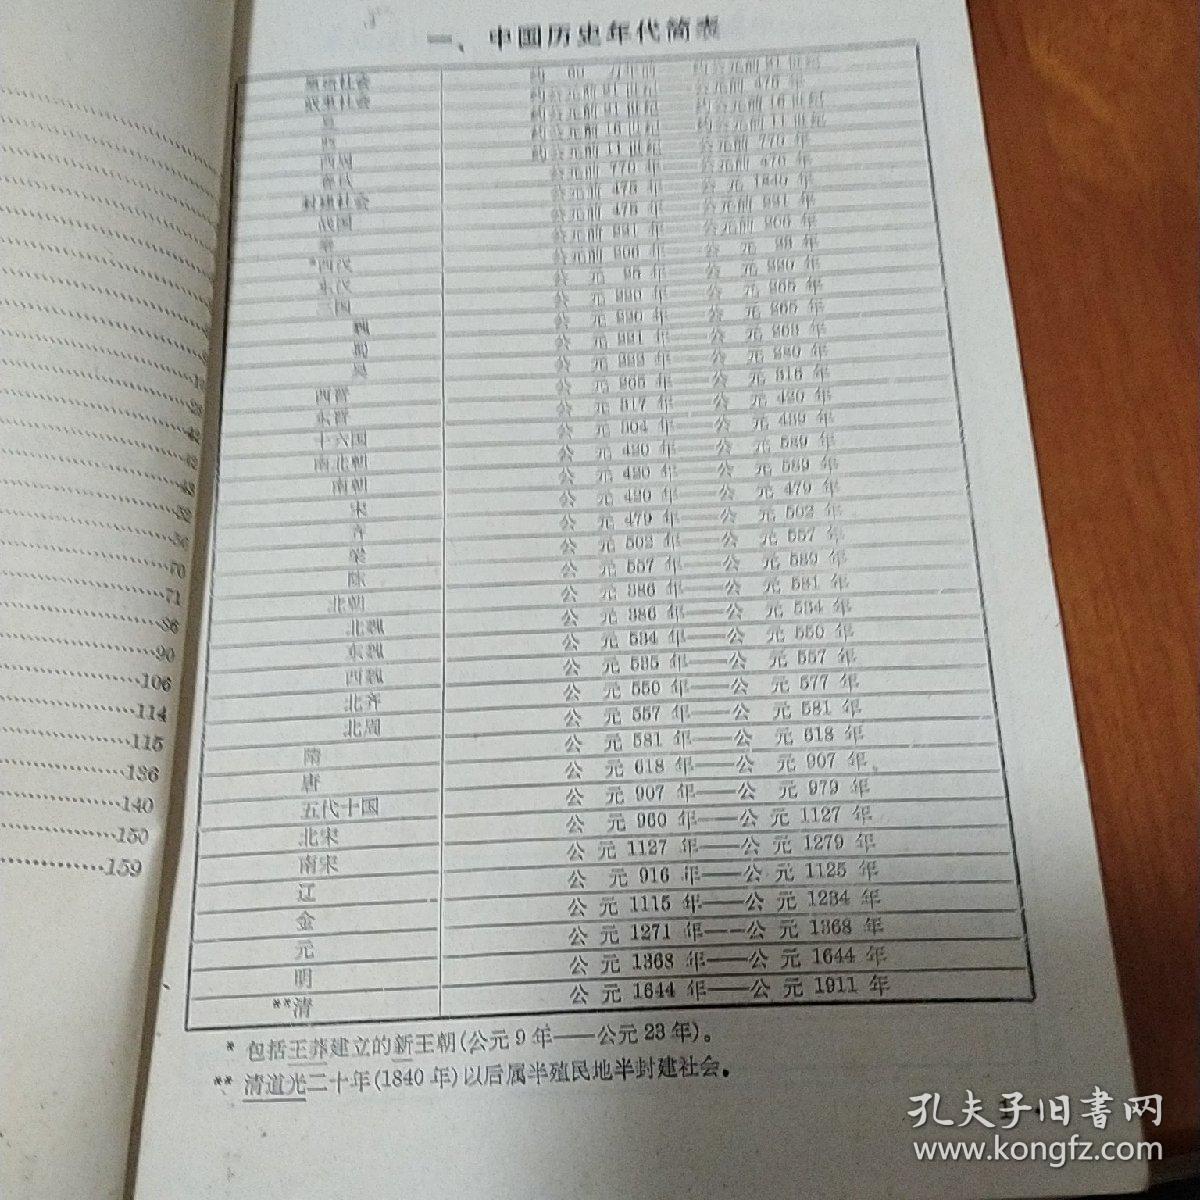 一、中国历史年代简表
原始社会 约 60 万年前——约公元前 21 世纪
奴隶社会 约公元前 21 世纪——公元前 475 年
夏 约公元前 21 世纪——约公元前 16 世纪
商 约公元前 16 世纪——约公元前 11 世纪
西周 约公元前 11 世纪——公元前 770 年
春秋 公元前 770 年——公元前 476 年
封建社会 公元前 475 年——公元 1840 年
战国 公元前 475 年——公元前 221 年
秦 公元前 221 年——公元前 206 年
*西汉 公元前 206 年——公元 23 年
东汉 公元 25 年——公元 220 年
三国 公元 220 年——公元 265 年
魏 公元 220 年——公元 265 年
蜀 公元 221 年——公元 263 年
吴 公元 222 年——公元 280 年
西晋 公元 265 年——公元 316 年
东晋 公元 317 年——公元 420 年
十六国 公元 304 年——公元 439 年
南北朝 公元 420 年——公元 589 年
南朝 公元 420 年——公元 589 年
宋 公元 420 年——公元 479 年
齐 公元 479 年——公元 502 年
梁 公元 502 年——公元 557 年
陈 公元 557 年——公元 589 年
北朝 公元 386 年——公元 581 年
北魏 公元 386 年——公元 534 年
东魏 公元 534 年——公元 550 年
西魏 公元 535 年——公元 557 年
北齐 公元 550 年——公元 577 年
北周 公元 557 年——公元 581 年
隋 公元 581 年——公元 618 年
唐 公元 618 年——公元 907 年
五代十国 公元 907 年——公元 979 年
北宋 公元 960 年——公元 1127 年
南宋 公元 1127 年——公元 1279 年
辽 公元 916 年——公元 1125 年
金 公元 1115 年——公元 1234 年
元 公元 1271 年——公元 1368 年
明 公元 1368 年——公元 1644 年
**清 公元 1644 年——公元 1911 年
* 包括王莽建立的新王朝(公元 9 年——公元 23 年)。
** 清道光二十年(1840 年)以后属半殖民地半封建社会。
70
71
86
90
106
114
115
136
140
150
159
孔夫子旧书网
www.kongfz.com